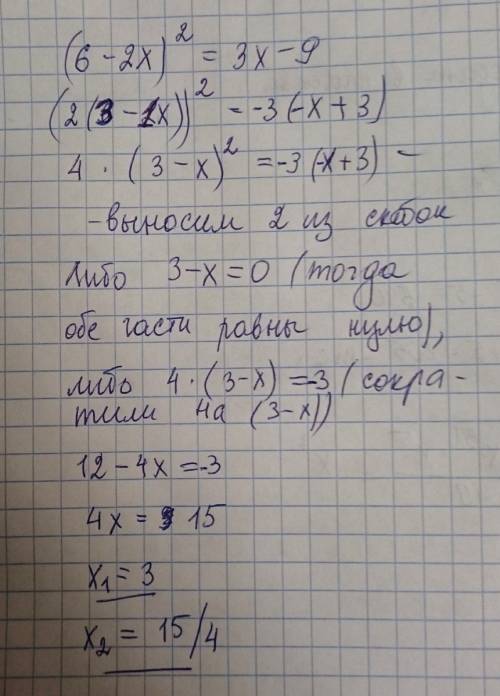 (6-2x)² = 3x-9
(2(3-1x))² = -3(-x+3)
4 · (3-x)² = -3(-x+3) -
-выносим 2 из скобок
Либо 3-x=0 (тогда
обе части равны нулю),
либо 4·(3-x) =-3 (сокра-
тили на (3-x))
12-4x =-3
4x = 15
x₁ = 3
x₂ = 15/4